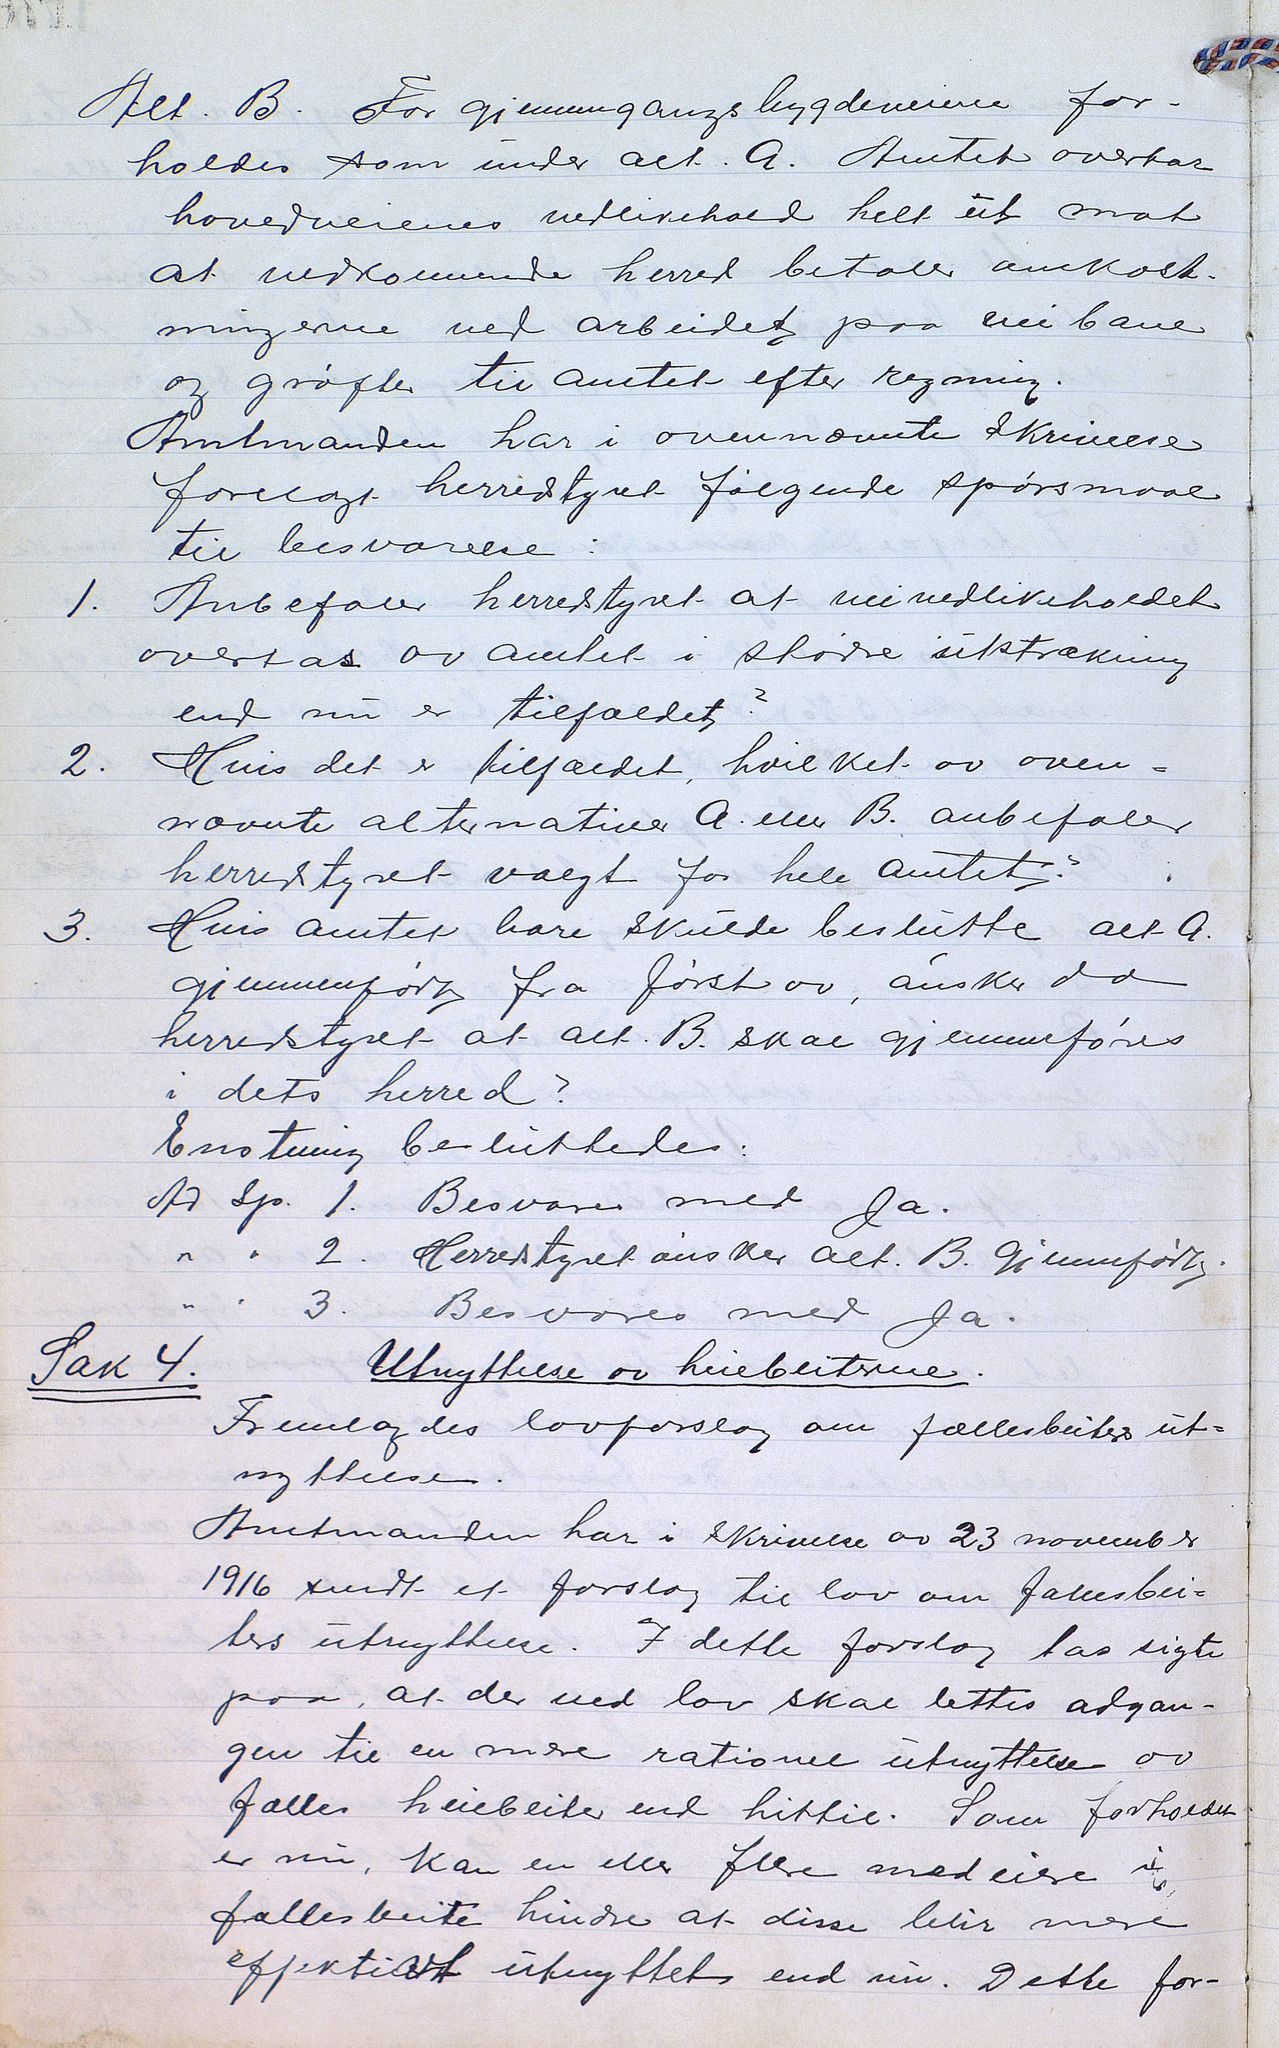 Alt. B. For gjennemgangsbygdeveiene for-
holdes som under alt. A. Amtet overtar
hovedveienes vedlikehold helt ut mot
at vedkommende herred betaler omkost-
ningerne ved arbeidet paa veibane
og grøfter til amtet efter regning.
Amtmanden har i ovennævnte skrivelse
forelagt herredstyret følgende spørsmaal
til besvarelse:
1. Anbefaler herredstyret at veivedlikeholdet
overtas av amtet i større utstrækning
end nu er tilfældet?
2. Hvis det er tilfældet, hvilket av oven-
nævnte alternativer A. eller B. anbefaler
herredstyret valgt for hele amtet?
3. Hvis amtet bare skulde beslutte alt. A.
gjennemført fra først av, ønsker da
herredstyret at alt. B. skal gjennemføres
i dets herred?
Enstemmig besluttedes:
Ad Sp. 1. Besvares med Ja.
" " 2. Herredstyret ønsker alt. B. gjennemført.
" " 3. Besvares med Ja.
Sak 4. Utnyttelse av heiebeiterne.
Fremlagdes lovforslag om fællesbeiters ut-
nyttelse.
Amtmanden har i skrivelse av 23 november
1916 sendt et forslag til lov om fællesbei-
ters utnyttelse. I dette forslag tas sigte
paa, at der ved lov skal lettes adgan-
gen til en mere rationel utnyttelse av
fælles heiebeiter end hittil. Som forholdet
er nu, kan en eller flere medeiere i
fællesbeite hindre at disse blir mere
effektivt utnyttet end nu. Dette for-